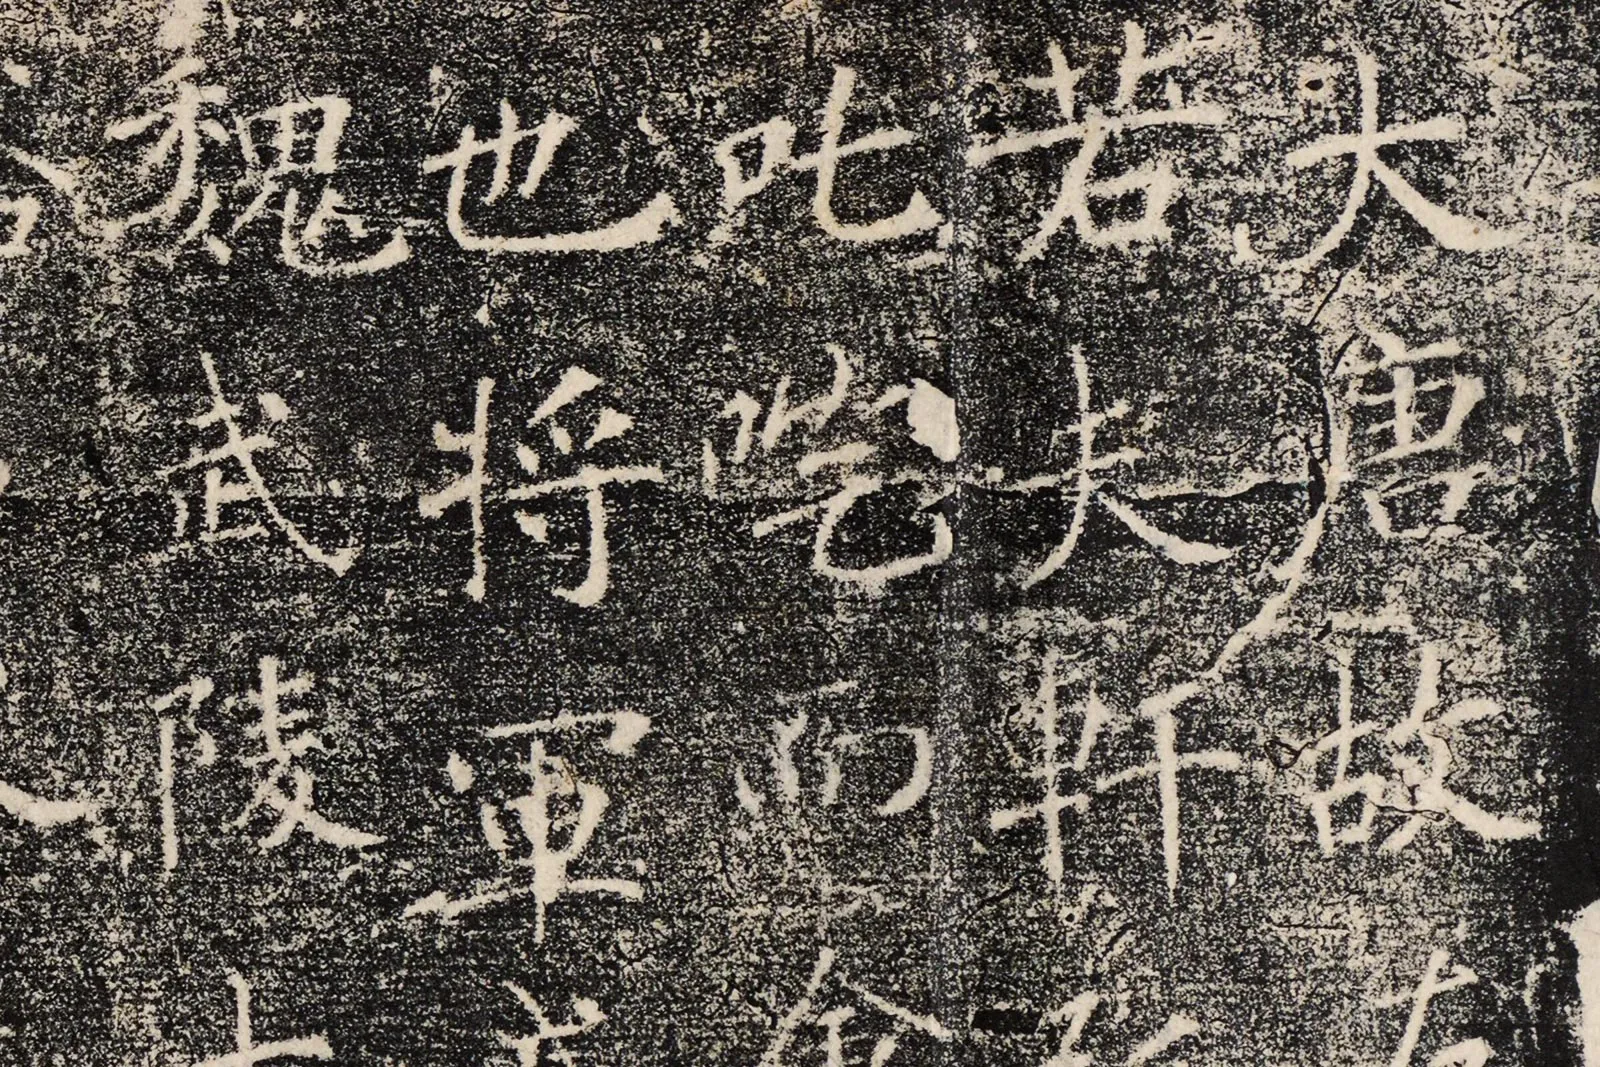 大唐故
若夫軒
叱咤而
也將軍
魏武陵